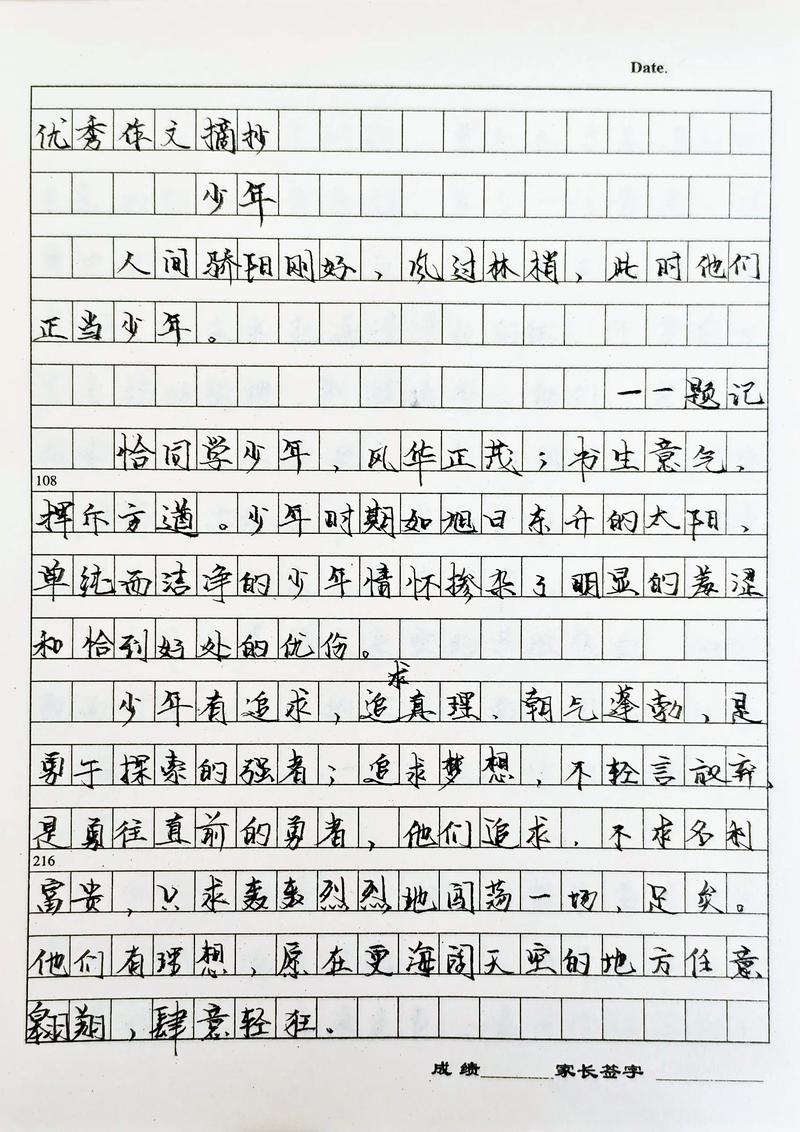 Date.
优秀作文摘抄
少年
人间骄阳刚好，风过林梢，此时他们
正当少年。
——题记
恰同学少年，风华正茂；书生意气，
108
挥斥方遒。少年时期如旭日东升的太阳，
单纯而洁净的少年情怀掺杂了明显的羞涩
和恰到好处的优伤。
少年有追求，追求真理，朝气蓬勃，是
勇于探索的强者；追求梦想，不轻言放弃，
是勇往直前的勇者，他们追求，不求名利
216
富贵，只求轰轰烈烈地闯荡一场，足矣。
他们有理想，原在更海阔天空的地方任意
翱翔，肆意轻狂。
成绩 家长签字